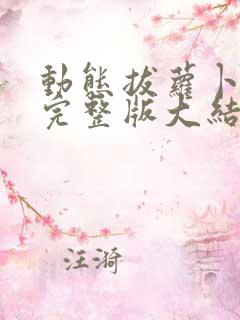 動態拔蘿卜
完整版大結
汪漪